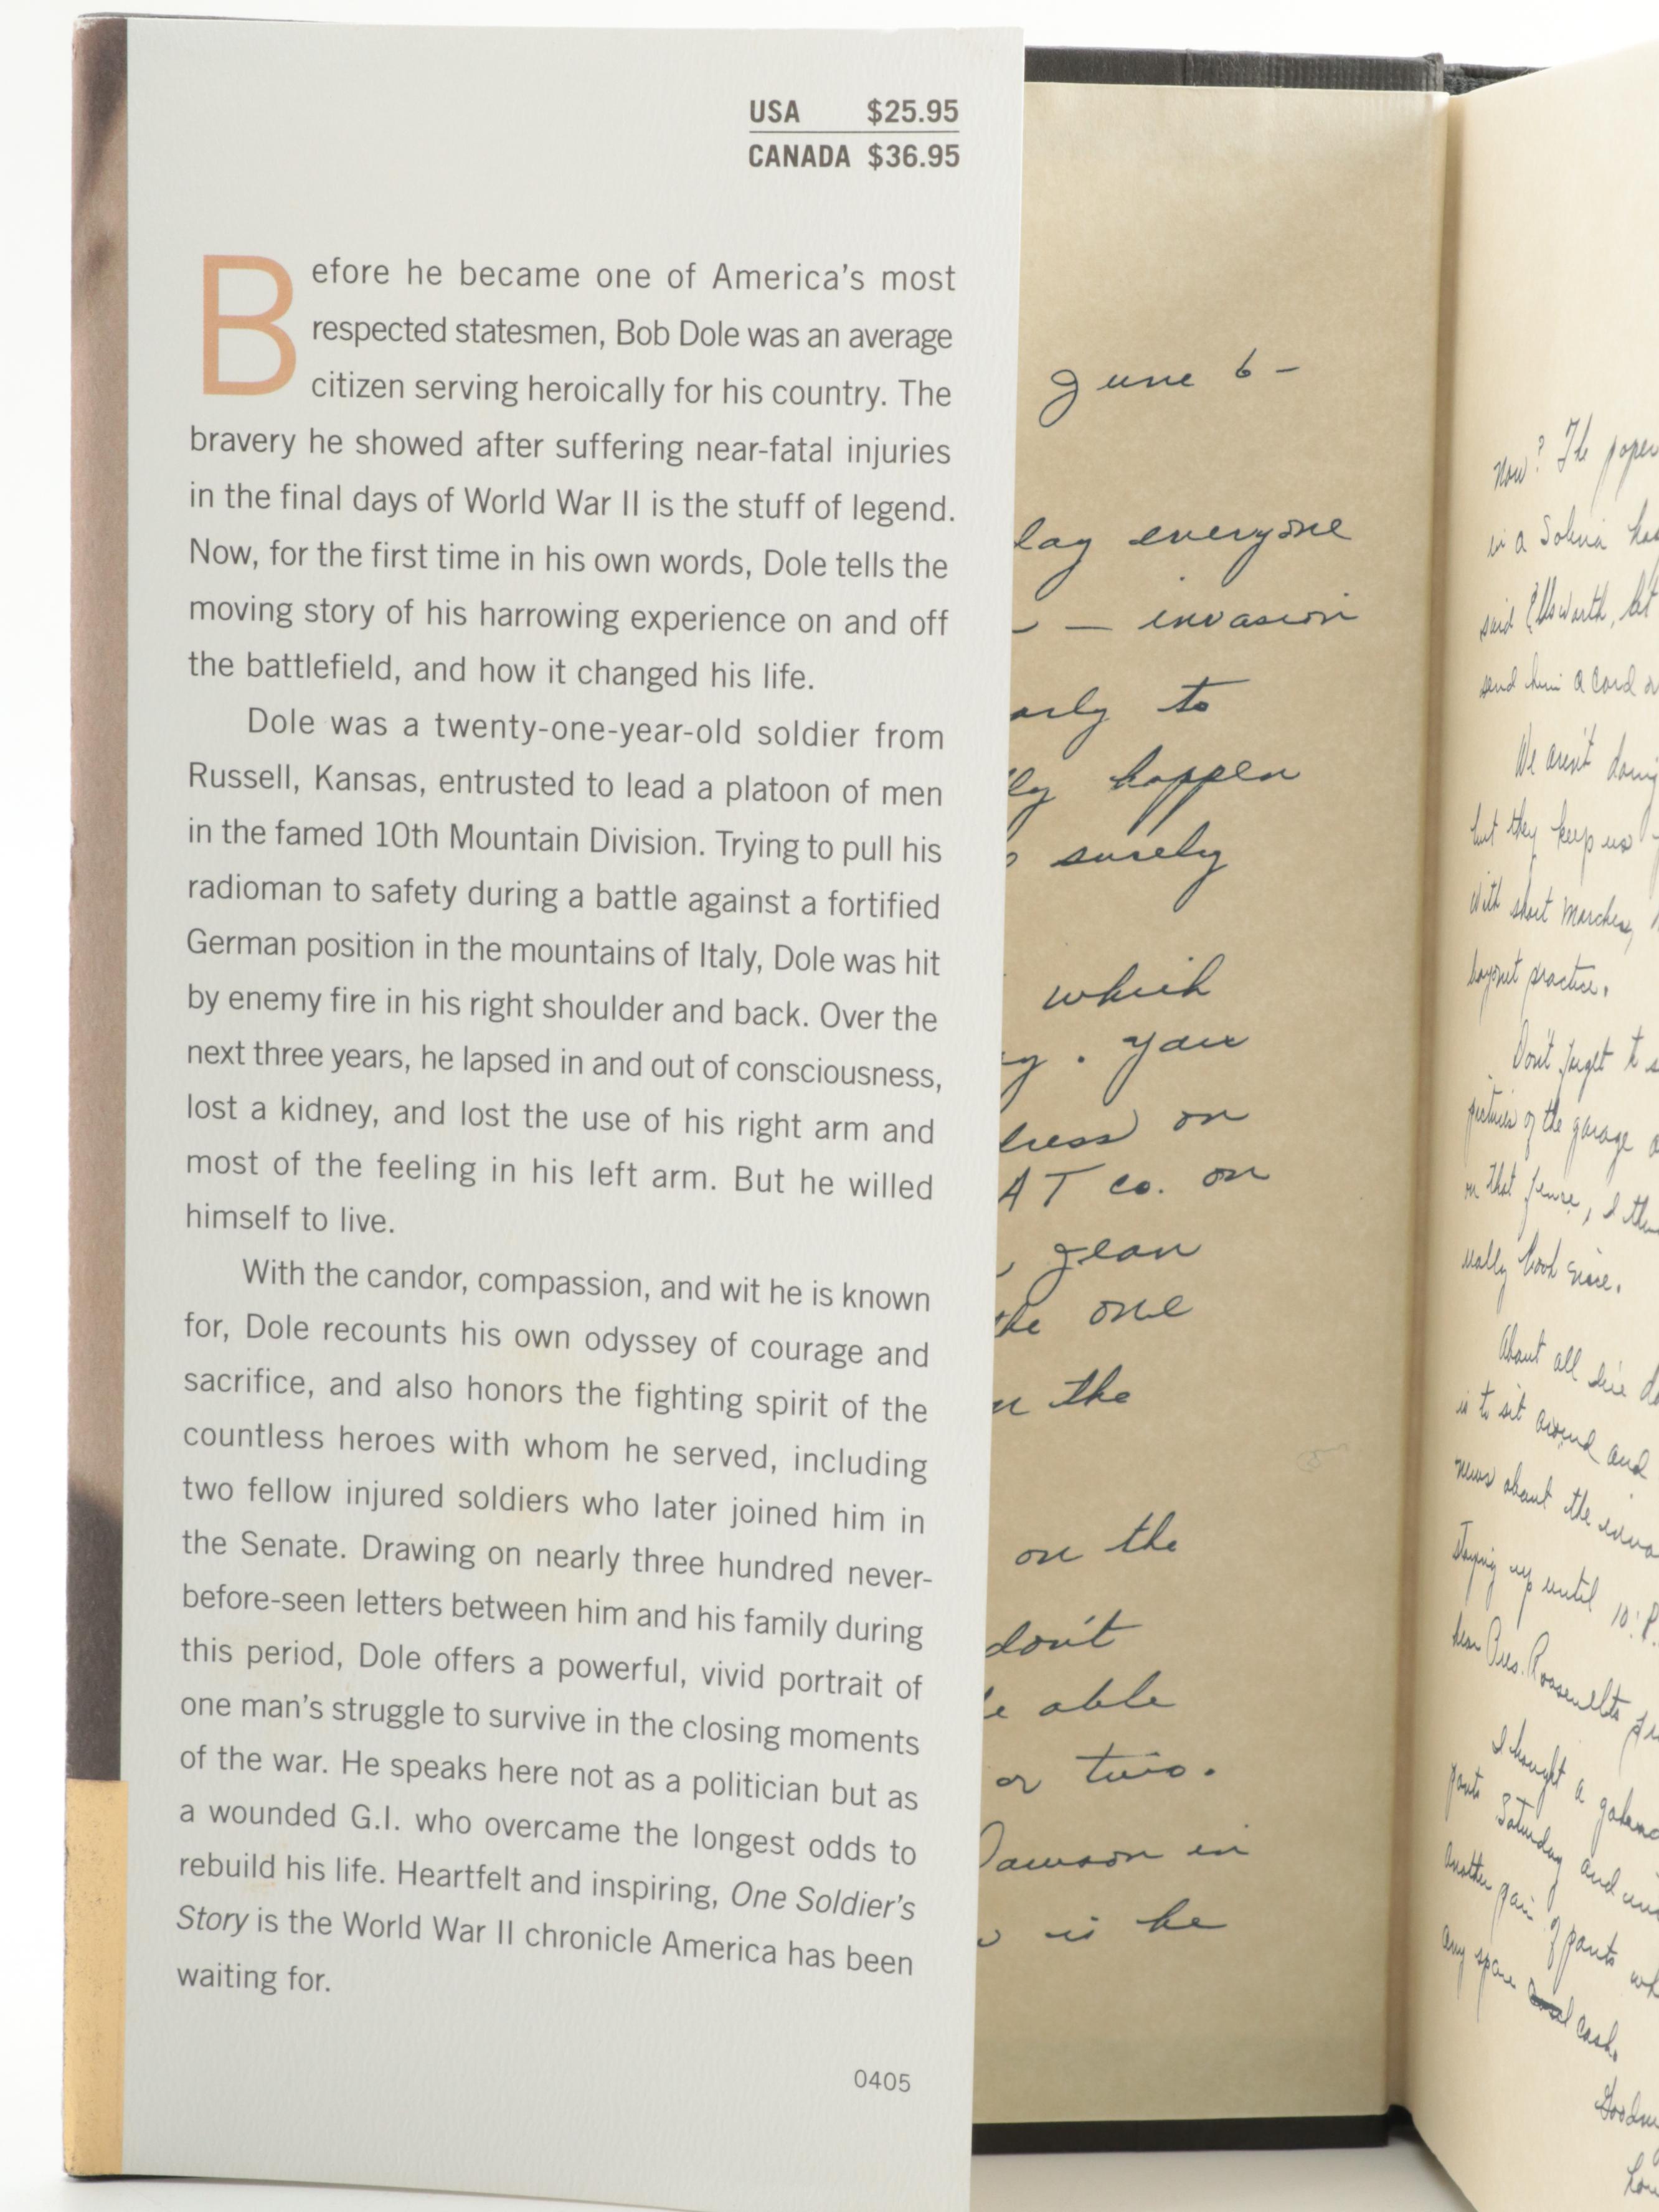 USA $25.95
CANADA $36.95
Before he became one of America's most
respected statesmen, Bob Dole was an average
citizen serving heroically for his country. The
bravery he showed after suffering near-fatal injuries
in the final days of World War II is the stuff of legend.
Now, for the first time in his own words, Dole tells the
moving story of his harrowing experience on and off
the battlefield, and how it changed his life.
Dole was a twenty-one-year-old soldier from
Russell, Kansas, entrusted to lead a platoon of men
in the famed 10th Mountain Division. Trying to pull his
radioman to safety during a battle against a fortified
German position in the mountains of Italy, Dole was hit
by enemy fire in his right shoulder and back. Over the
next three years, he lapsed in and out of consciousness,
lost a kidney, and lost the use of his right arm and
most of the feeling in his left arm. But he willed
himself to live.
With the candor, compassion, and wit he is known
for, Dole recounts his own odyssey of courage and
sacrifice, and also honors the fighting spirit of the
countless heroes with whom he served, including
two fellow injured soldiers who later joined him in
the Senate. Drawing on nearly three hundred never-
before-seen letters between him and his family during
this period, Dole offers a powerful, vivid portrait of
one man's struggle to survive in the closing moments
of the war. He speaks here not as a politician but as
a wounded G.I. who overcame the longest odds to
rebuild his life. Heartfelt and inspiring, One Soldier's
Story is the World War II chronicle America has been
waiting for.
0405
June 6-
everyone
— invasion
to
happen
surely
which
on
AT co. on
Jean
the one
the
on the
don't
able
or two.
Dawson in
is he
now? The
in a Salina
said Ellsworth,
send him a card
We aren't
but they keep us
with short marches,
bayonet practice.
Don't forget to
pictures of the garage
on that fence, I
really look nice.
About all we
is to sit around and
news about the
Staying up until 10:
hear Pres. Roosevelts
I bought a
pants Saturday and
another pair of pants
any spare cash.